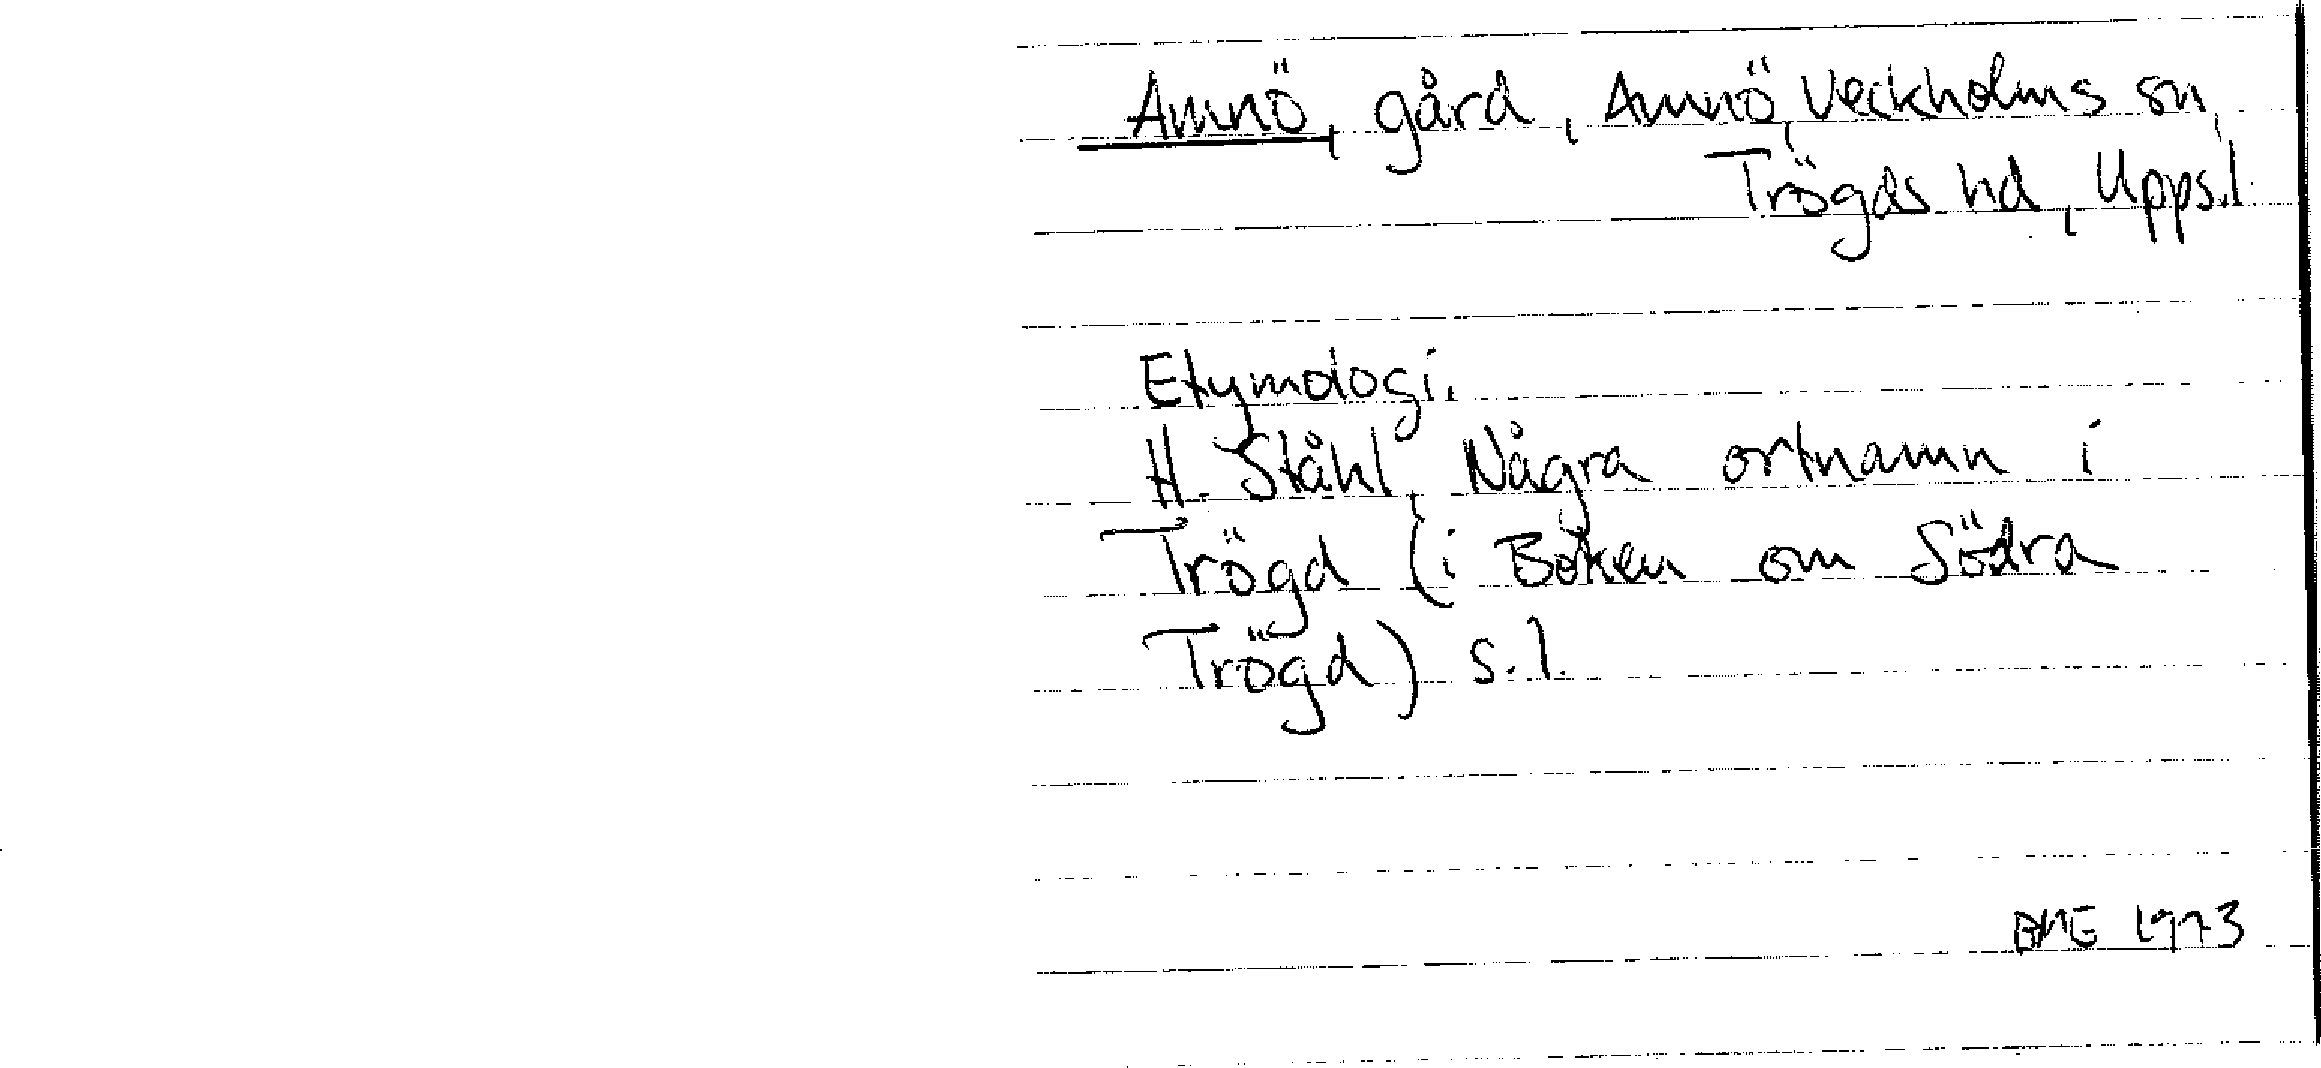 Amnö, gård, Amnö, Veckholms sn,
Trögds hd, Upps.l.
Etymologi.
H. Ståhl, Några ortnamn i
Trögd (i Boken om Södra
Trögd) s. 1.
BME 1973